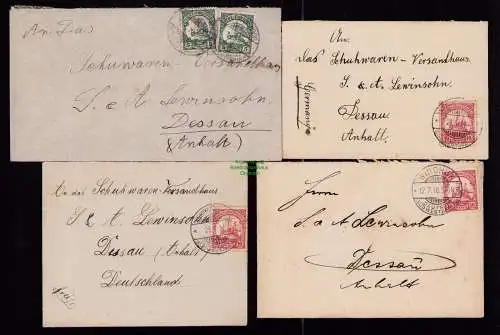 An Das
Schuwaren-Versandthaus
S & A Lewinsohn.
Dessau
(Anhalt)
An
das Schuhwaren-Versandhaus
S. & A. Lewinsohn.
Dessau
Anhalt.
An das Schuhwaren Versandhaus
S & A. Lewinsohn
Dessau (Anhalt)
Deutschland.
Herrn
S. & A Lewinsohn
Dessau
Anhalt